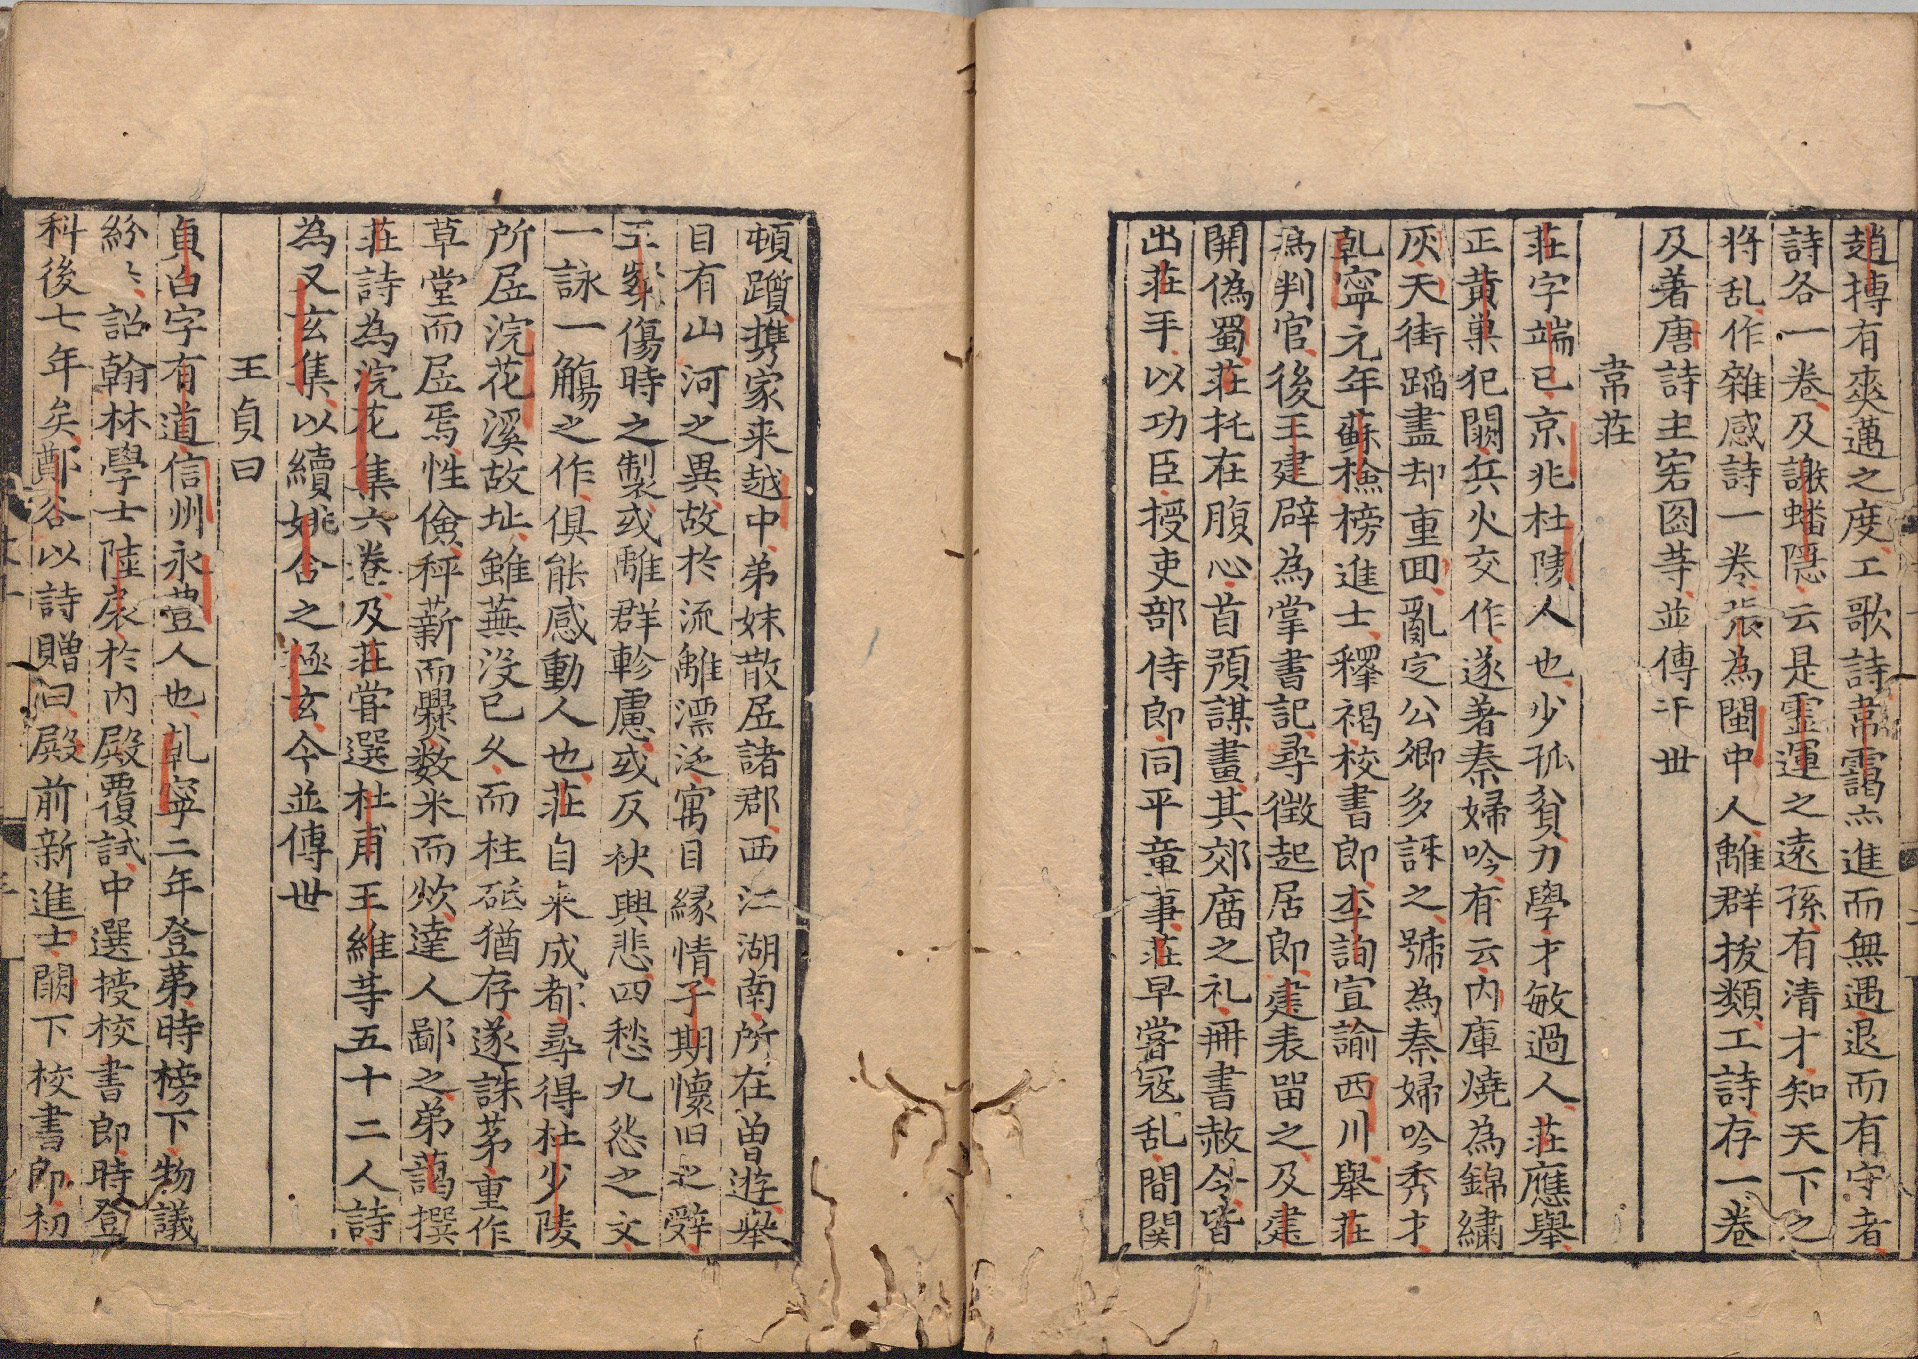 趙摶有爽邁之度工歌詩常靄亦進而無遇退而有守者
詩各一卷及謝蟠隱云是霊運之遠孫有清才知天下之
将乱作雜感詩一卷張為閩中人離群拔類工詩存一卷
及著唐詩主客图䓁並傳于世
韋莊
莊字端己京兆杜陵人也少孤貧力學才敏過人莊應舉
正黄巢犯闕兵火交作遂著秦婦吟有云内庫燒為錦繡
灰天街蹈盡却重囬亂定公卿多訝之號為秦婦吟秀才
乹寧元年蘇檢榜進士釋褐校書郎李詢宣諭西川舉莊
為判官後王建辟為掌書記尋徴起居郎建表畱之及建
開偽蜀莊托在腹心首預謀畫其郊庿之礼冊書赦令皆
出莊手以功臣授吏部侍郎同平章事莊早嘗宼乱間関
頓躓携家来越中弟妹散居諸郡西江湖南所在曽遊舉
目有山河之異故於流離漂泛寓目縁情子期懷旧之辤
王粲傷時之製或離群軫慮或反袂興悲四愁九愁之文
一詠一觴之作俱能感動人也莊自来成都尋得杜少陵
所居浣花溪故址雖蕪没已久而柱砥猶存遂誅茅重作
草堂而居焉性儉秤薪而爨数米而炊達人鄙之弟藹撰
莊詩為浣花集六卷及莊嘗選杜甫王維䓁五十二人詩
為又玄集以續姚合之極玄今並傳世
王貞白
貞白字有道信州永豊人也乹寧二年登苐時榜下物議
紛〻詔翰林學士陸扆於内殿覆試中選授校書郎時登
科後七年矣鄭谷以詩贈曰殿前新進士闕下校書郎初